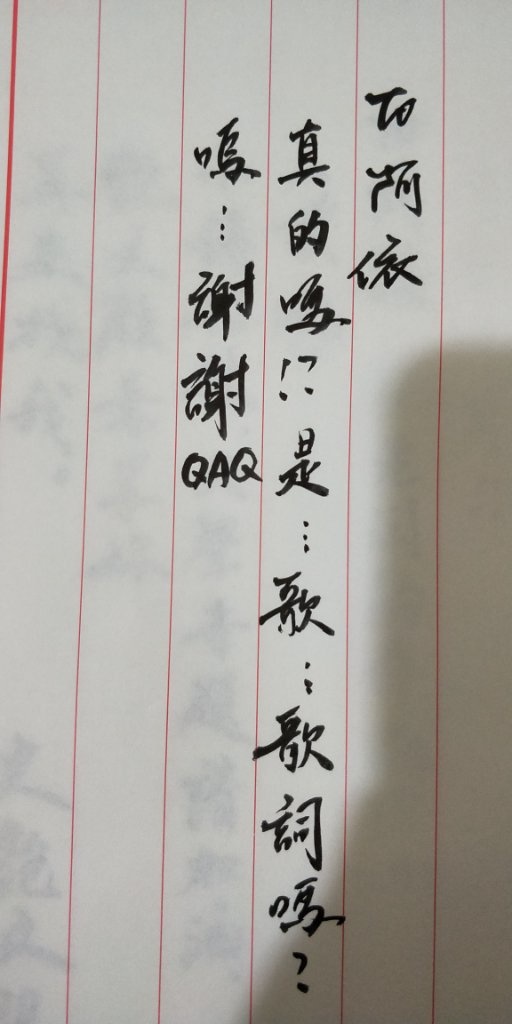 To 阿依
真的嗎!?是…歌…歌詞嗎?
嗚…謝謝QAQ